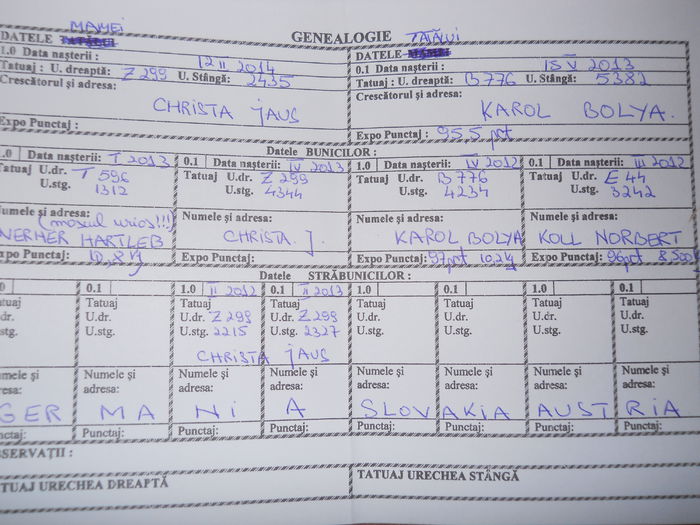 MAMEI
GENEALOGIE
TATĂLUI
DATELE
DATELE
1.0 Data nașterii : 12 II 2014
0.1 Data nașterii : 15 V 2013
Tatuaj : U. dreaptă: Z 299 U. Stângă: 2435
Tatuaj : U. dreaptă: B 776 U. Stângă: 5382
Crescătorul și adresa:
Crescătorul și adresa:
CHRISTA JAUS
KAROL BOLYA.
Expo Punctaj :
Expo Punctaj : 95,5 pct
Datele BUNICILOR :
.0 Data nașterii: I 2013
0.1 Data nașterii: IV 2013
1.0 Data nașterii: IV 2012
0.1 Data nașterii: III 2012
Tatuaj U.dr. T 596
Tatuaj U.dr. Z 299
Tatuaj U.dr. B 776
Tatuaj U.dr. E 44
U.stg. 1312
U.stg. 4344
U.stg. 4234
U.stg. 3242
Numele și adresa:
Numele și adresa:
Numele și adresa:
Numele și adresa:
(moșul urios!!!)
WERNER HARTLEB
CHRISTA J.
KAROL BOLYA
KOLL NORBERT
xpo Punctaj: 10,8 kg
Expo Punctaj:
Expo Punctaj: 97pct 10,2 kg
Expo Punctaj: 96pct 8,500
Datele STRĂBUNICILOR :
0 0.1 1.0 II 2012 0.1 II 2013 1.0 0.1 1.0 0.1
atuaj Tatuaj Tatuaj Tatuaj Tatuaj Tatuaj Tatuaj Tatuaj
.dr. U.dr. U.dr. Z 299 U.dr. Z 299 U.dr. U.dr. U.dr. U.dr.
stg. U.stg. U.stg. 2215 U.stg. 2327 U.stg. U.stg. U.stg. U.stg.
CHRISTA JAUS
mele și Numele și Numele și Numele și Numele și Numele și Numele și Numele și
resa: adresa: adresa: adresa: adresa: adresa: adresa: adresa:
GER MA NI A SLOVAKIA AUSTRIA
nctaj: Punctaj: Punctaj: Punctaj: Punctaj: Punctaj: Punctaj: Punctaj:
SERVAȚII :
TUAJ URECHEA DREAPTĂ
TATUAJ URECHEA STÂNGĂ